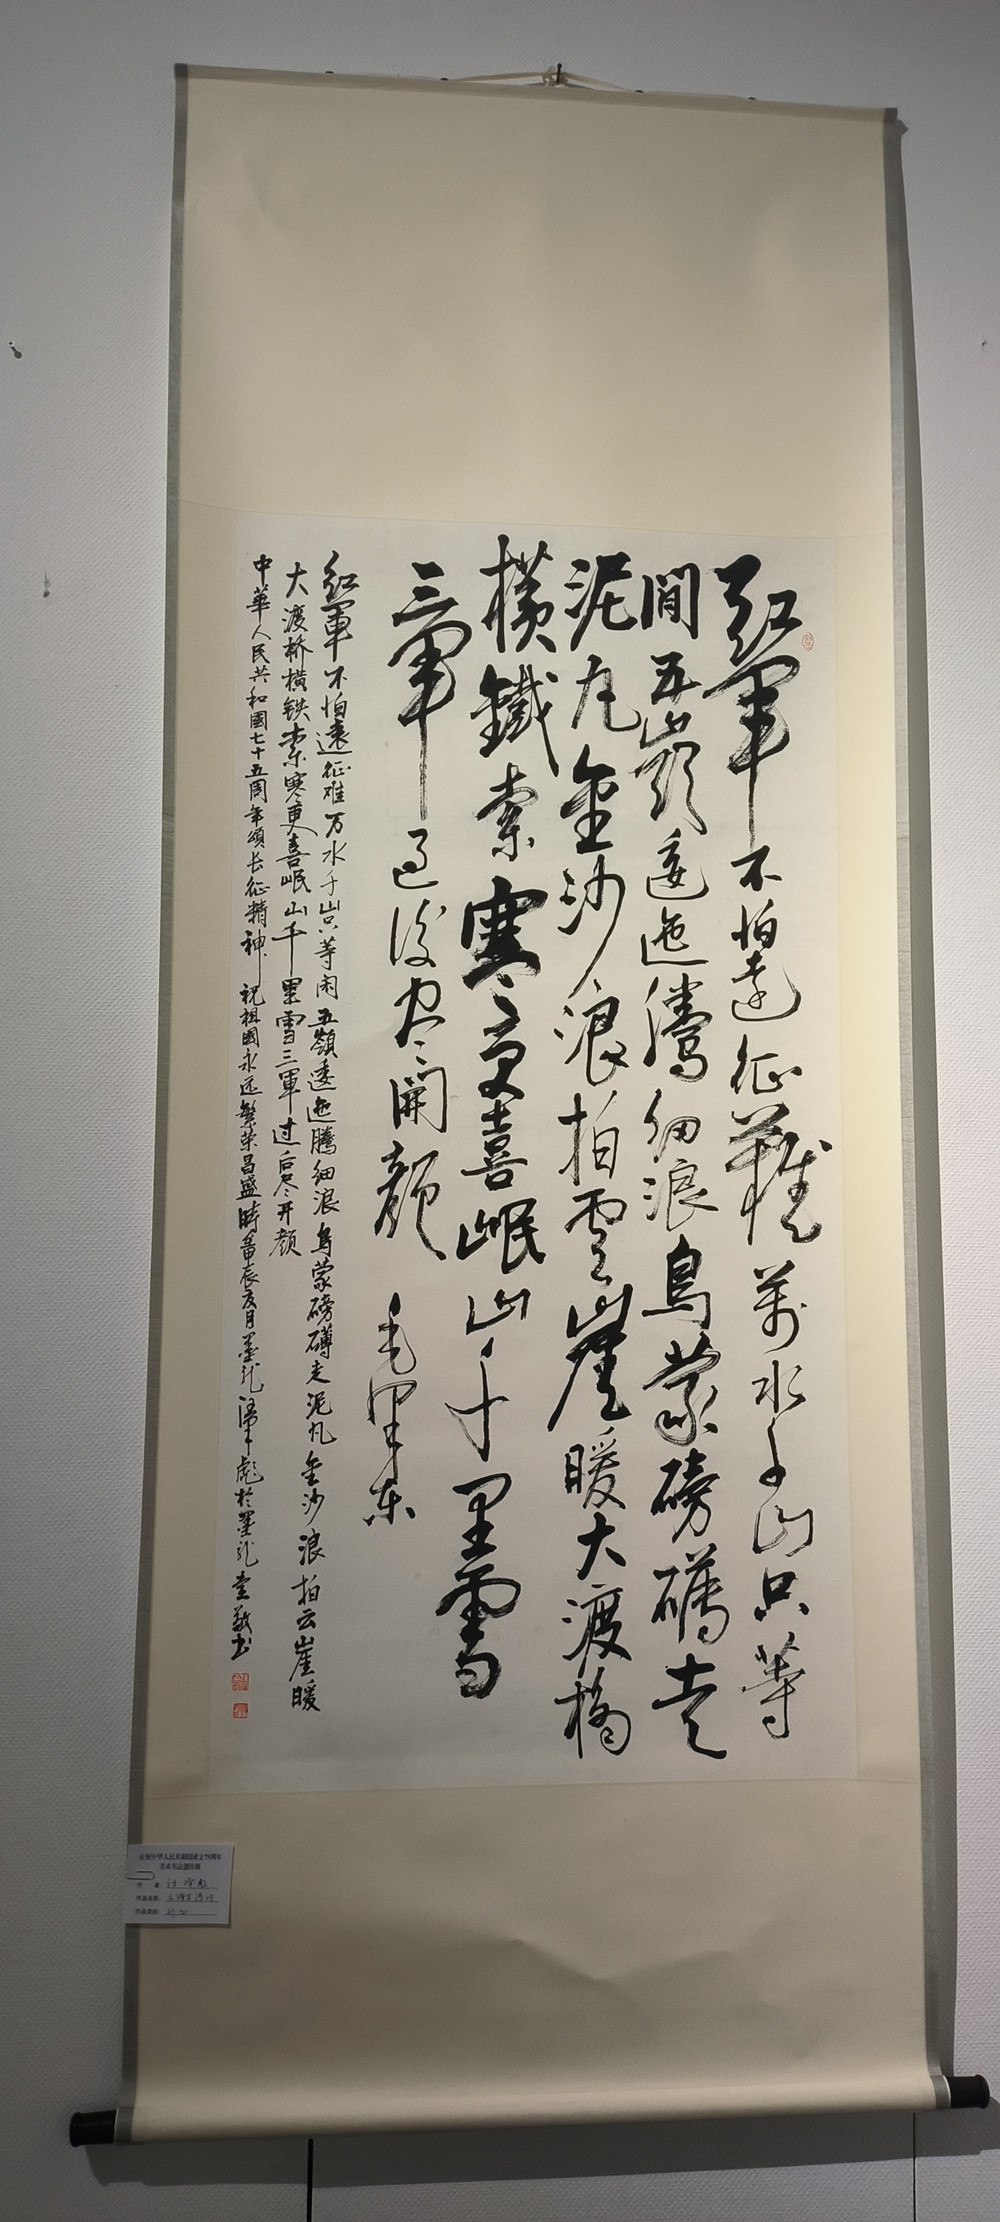 红军不怕远征難万水千山只等
閒五嶺逶迤腾细浪烏蒙磅礴走
泥丸金沙浪拍雲崖暖大渡橋
横鐵索寒更喜岷山千里雪
三軍过後尽開颜 毛泽东
红軍不怕遠征难万水千山只等闲五嶺逶迤腾细浪烏蒙磅礴走泥丸金沙浪拍云崖暖
大渡桥横铁索寒更喜岷山千里雪三軍过后尽开颜
中華人民共和國七十五周年颂长征精神祝祖國永远繁荣昌盛時甲辰夏月墨龙 彪於墨龙堂敬书
庆祝中华人民共和国成立75周年
美术书法创作展
作者:
作品名称:
作品类别: